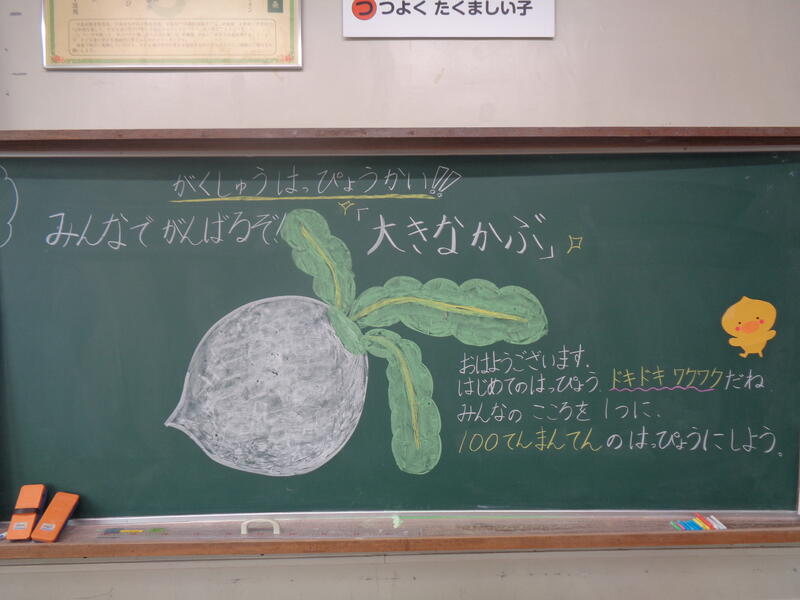 つつよく たくましい子
がくしゅうはっぴょうかい!!
みんなで がんばるぞ!
「大きなかぶ」
おはようございます。
はじめてのはっぴょう、ドキドキ ワクワクだね
みんなの こころを 1つに、
100てんまんてんのはっぴょうにしよう。